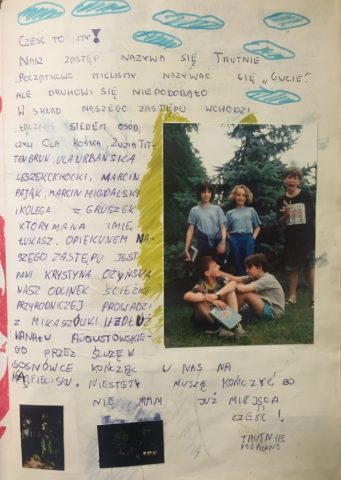 CZEŚĆ TO MY!
NASZ ZASTĘP NAZYWA SIĘ TRUTNIE
POCZĄTKOWO MIELIŚMY NAZYWAĆ SIĘ „GUCIE”,
ALE DRUHOWI SIĘ NIEPODOBAŁO
W SKŁAD NASZEGO ZASTĘPU WCHODZI
ŁĄCZNIE SIEDEM OSÓB,
OLA KOŚKA, ZUZIA TIT-
TENBRUN, ULA URBAŃSKA
LESZEK CICHOCKI, MARCIN
PAJĄK, MARCIN MIGDALSKI
I KOLEGA Z GRUSZEK
KTÓRY MA NA IMIĘ
ŁUKASZ. OPIEKUNEM NA-
SZEGO ZASTĘPU JEST
PANI KRYSTYNA OŻYŃSKA
NASZ ODCINEK ŚCIEŻKI
PRZYRODNICZEJ PROWADZI
Z MIKASZÓWKI WZDŁUŻ
KANAŁU AUGUSTOWSKIE-
GO PRZEZ ŚLUZĘ W
SOSNÓWCE KOŃCZĄC U NAS NA
KĄPIELISKU. NIESTETY MUSZĘ KOŃCZYĆ BO
NIE MAM JUŻ MIEJSCA
CZEŚĆ!
TRUTNIE